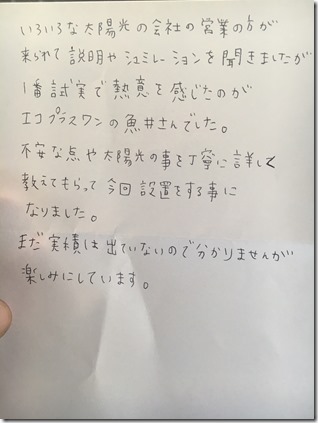 いろいろな太陽光の会社の営業の方が
来られて説明やシュミレーションを聞きましたが
1番試実で熱意を感じたのが
エコプラスワンの魚井さんでした。
不安な点や太陽光の事を丁寧に詳しく
教えてもらって今回設置をする事に
なりました。
まだ実積は出ていないので分かりませんが
楽しみにしています。